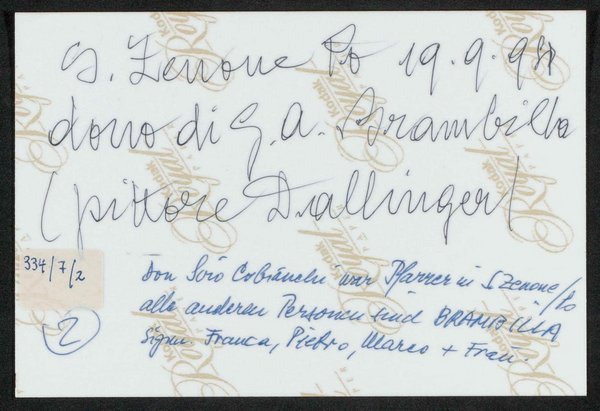 S. Zenone Po 19.9.98
dono di G. A. Brambilla
(pittore Dallinger)
334/7/2
Don Siro Cobianchi war Pfarrer in S Zenone/Po
alle anderen Personen sind BRAMBILLA
Sigra. Franca, Pietro, Marco + Frau.
2
Kodak
Royal
PAPER